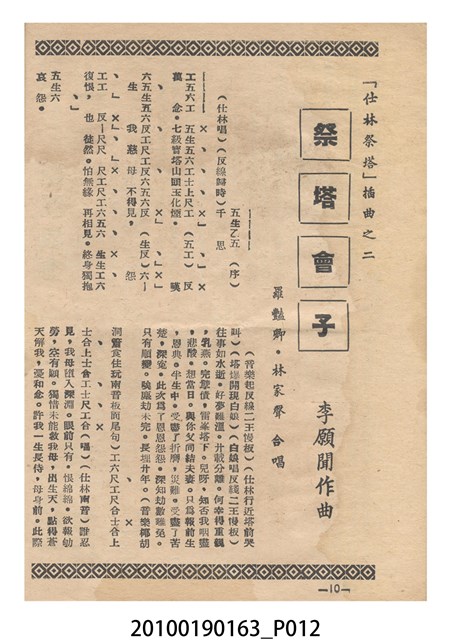 「仕林祭塔」插曲之二
祭塔會子
李願聞作曲
羅艷卿・林家聲 合唱
五生乙五 (序)
(仕林唱)(反線歸時)千 思
工五六工 五生五六工士上尺工 (五工) 反
萬 念。七級寶塔山頭玉化煙。 嘆
六五生五六反工尺工反六五六反 (生反) 六一
生 我 慈 母 不得見, 怨
工工 反一尺尺 工尺工六五六 生生工六
復恨, 也 徒然。怕無緣 再相見。終身獨抱
五生六
哀 怨。
(音樂起反線二王慢板)(仕林行近塔前哭
叫)(塔爆開現白娘)(白娘唱反綫二王慢板)
往事如水逝。好夢難溫。廿載分離。何幸得重覩
乳燕。完孽債,雷峯塔下。兒呀,知否我咽盡
悲酸。想當日。與你父同結夫妻。只爲報前生
恩典。半生中。受盡了折磨,災難。受盡了苦
楚,深寃。此次爲了恩恩怨怨。深知劫數難免。
只有願變。強區劫未完。長埋廿年。(音樂椰胡
洞簫食住玩南音板面尾句)工六尺工尺合士合上
士合上士合工士尺工合(唱)(仕林南音)誰忍
見,我母墮入深淵。眼前只有。恨綿綿。欲報劬
勞,空有願。獨惜未能救我母,出生天,點得蒼
天解我,憂和念。許我一生長侍,母身前。此際
—10—
20100190163_P012